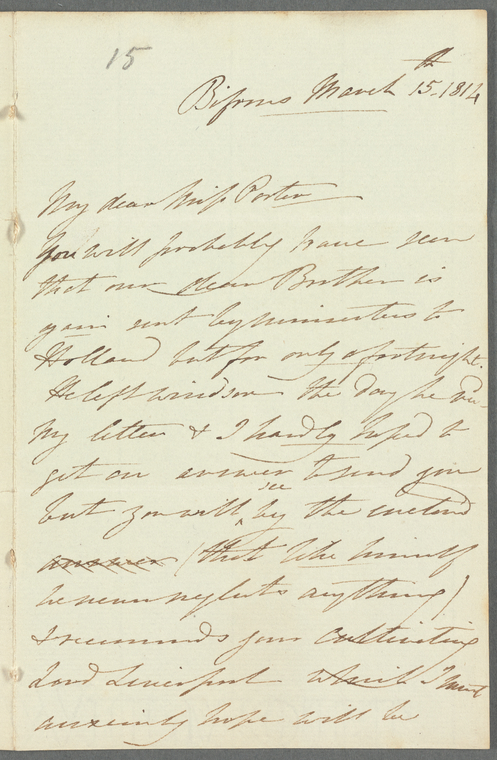 15
Bifrons March 15th - 1814
My dear Miss Porter
You will probably have seen
that our dear Brother is
again sent by ministers to
Holland but for only a fortnight.
He left Windsor the day he red
my letter & I hardly hoped to
get an answer to send you
but you will see by the enclosed
answer (that like himself
he never neglects anything)
& recommends your cultivating
Lord Liverpool which I most
anxiously hope will be